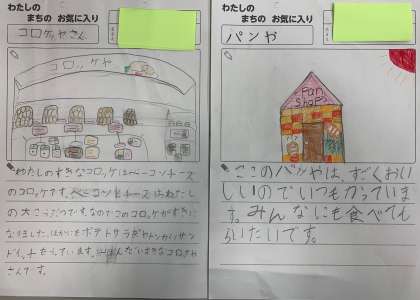 わたしの
まちの お気に入り
コロッケやさん
コロッケヤ
わたしのすきなコロッケはベーコンチーズ
のコロッケです。ベーコンとチーズはわたし
の大こうぶつです。なのでこのコロッケがすきに
なりました。ほかにもポテトサラダやトンカツサン
ドイッチもうっています。
さんです。
わたしの
まちの お気に入り
パンや
Pan
Shop
ここのパンやは、すごくおい
しいのでいつもかっていま
す。みんなにも食べても
らいたいです。